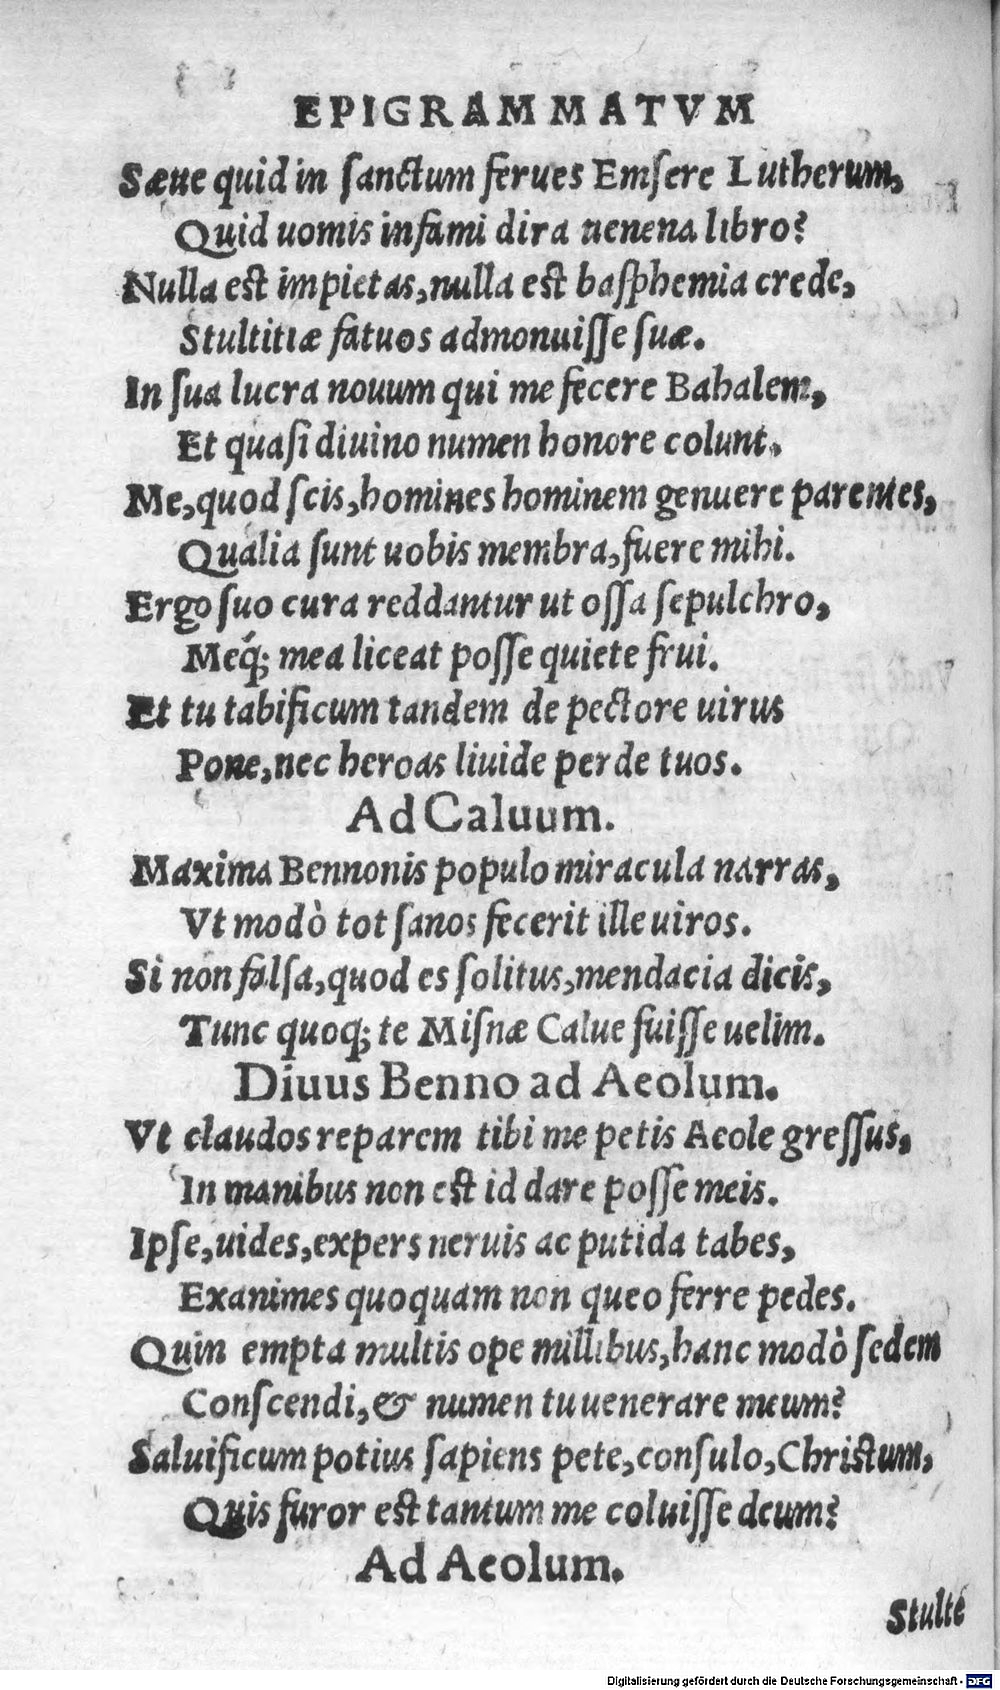 EPIGRAMMATVM
Sæue quid in ſanctum ferues Emſere Lutherum,
Quid uomis infami dira uenena libro?
Nulla est impietas, nulla est baſphemia crede,
Stultitiæ fatuos admonuiſſe ſuæ.
In ſua lucra nouum qui me fecere Bahalem,
Et quaſi diuino numen honore colunt.
Me, quod ſcis, homines hominem genuere parentes,
Qualia ſunt uobis membra, fuere mihi.
Ergo ſuo cura reddantur ut oſſa ſepulchro,
Meq́; mea liceat poſſe quiete frui.
Et tu tabificum tandem de pectore uirus
Pone, nec heroas liuide perde tuos.
Ad Caluum.
Maxima Bennonis populo miracula narras,
Vt modò tot ſanos fecerit ille uiros.
Si non falſa, quod es ſolitus, mendacia dicis,
Tunc quoq; te Miſnæ Calue fuiſſe uelim.
Diuus Benno ad Aeolum.
Vt claudos reparem tibi me petis Aeole greſſus,
In manibus non est id dare poſſe meis.
Ipſe, uides, expers neruis ac putida tabes,
Exanimes quoquam non queo ferre pedes.
Quin empta multis ope millibus, hanc modò ſedem
Conſcendi, & numen tu uenerare meum?
Saluificum potius ſapiens pete, conſulo, Christum,
Quis furor est tantum me coluiſſe deum?
Ad Aeolum.
Stulte
Digitalisierung gefördert durch die Deutsche Forschungsgemeinschaft - DFG